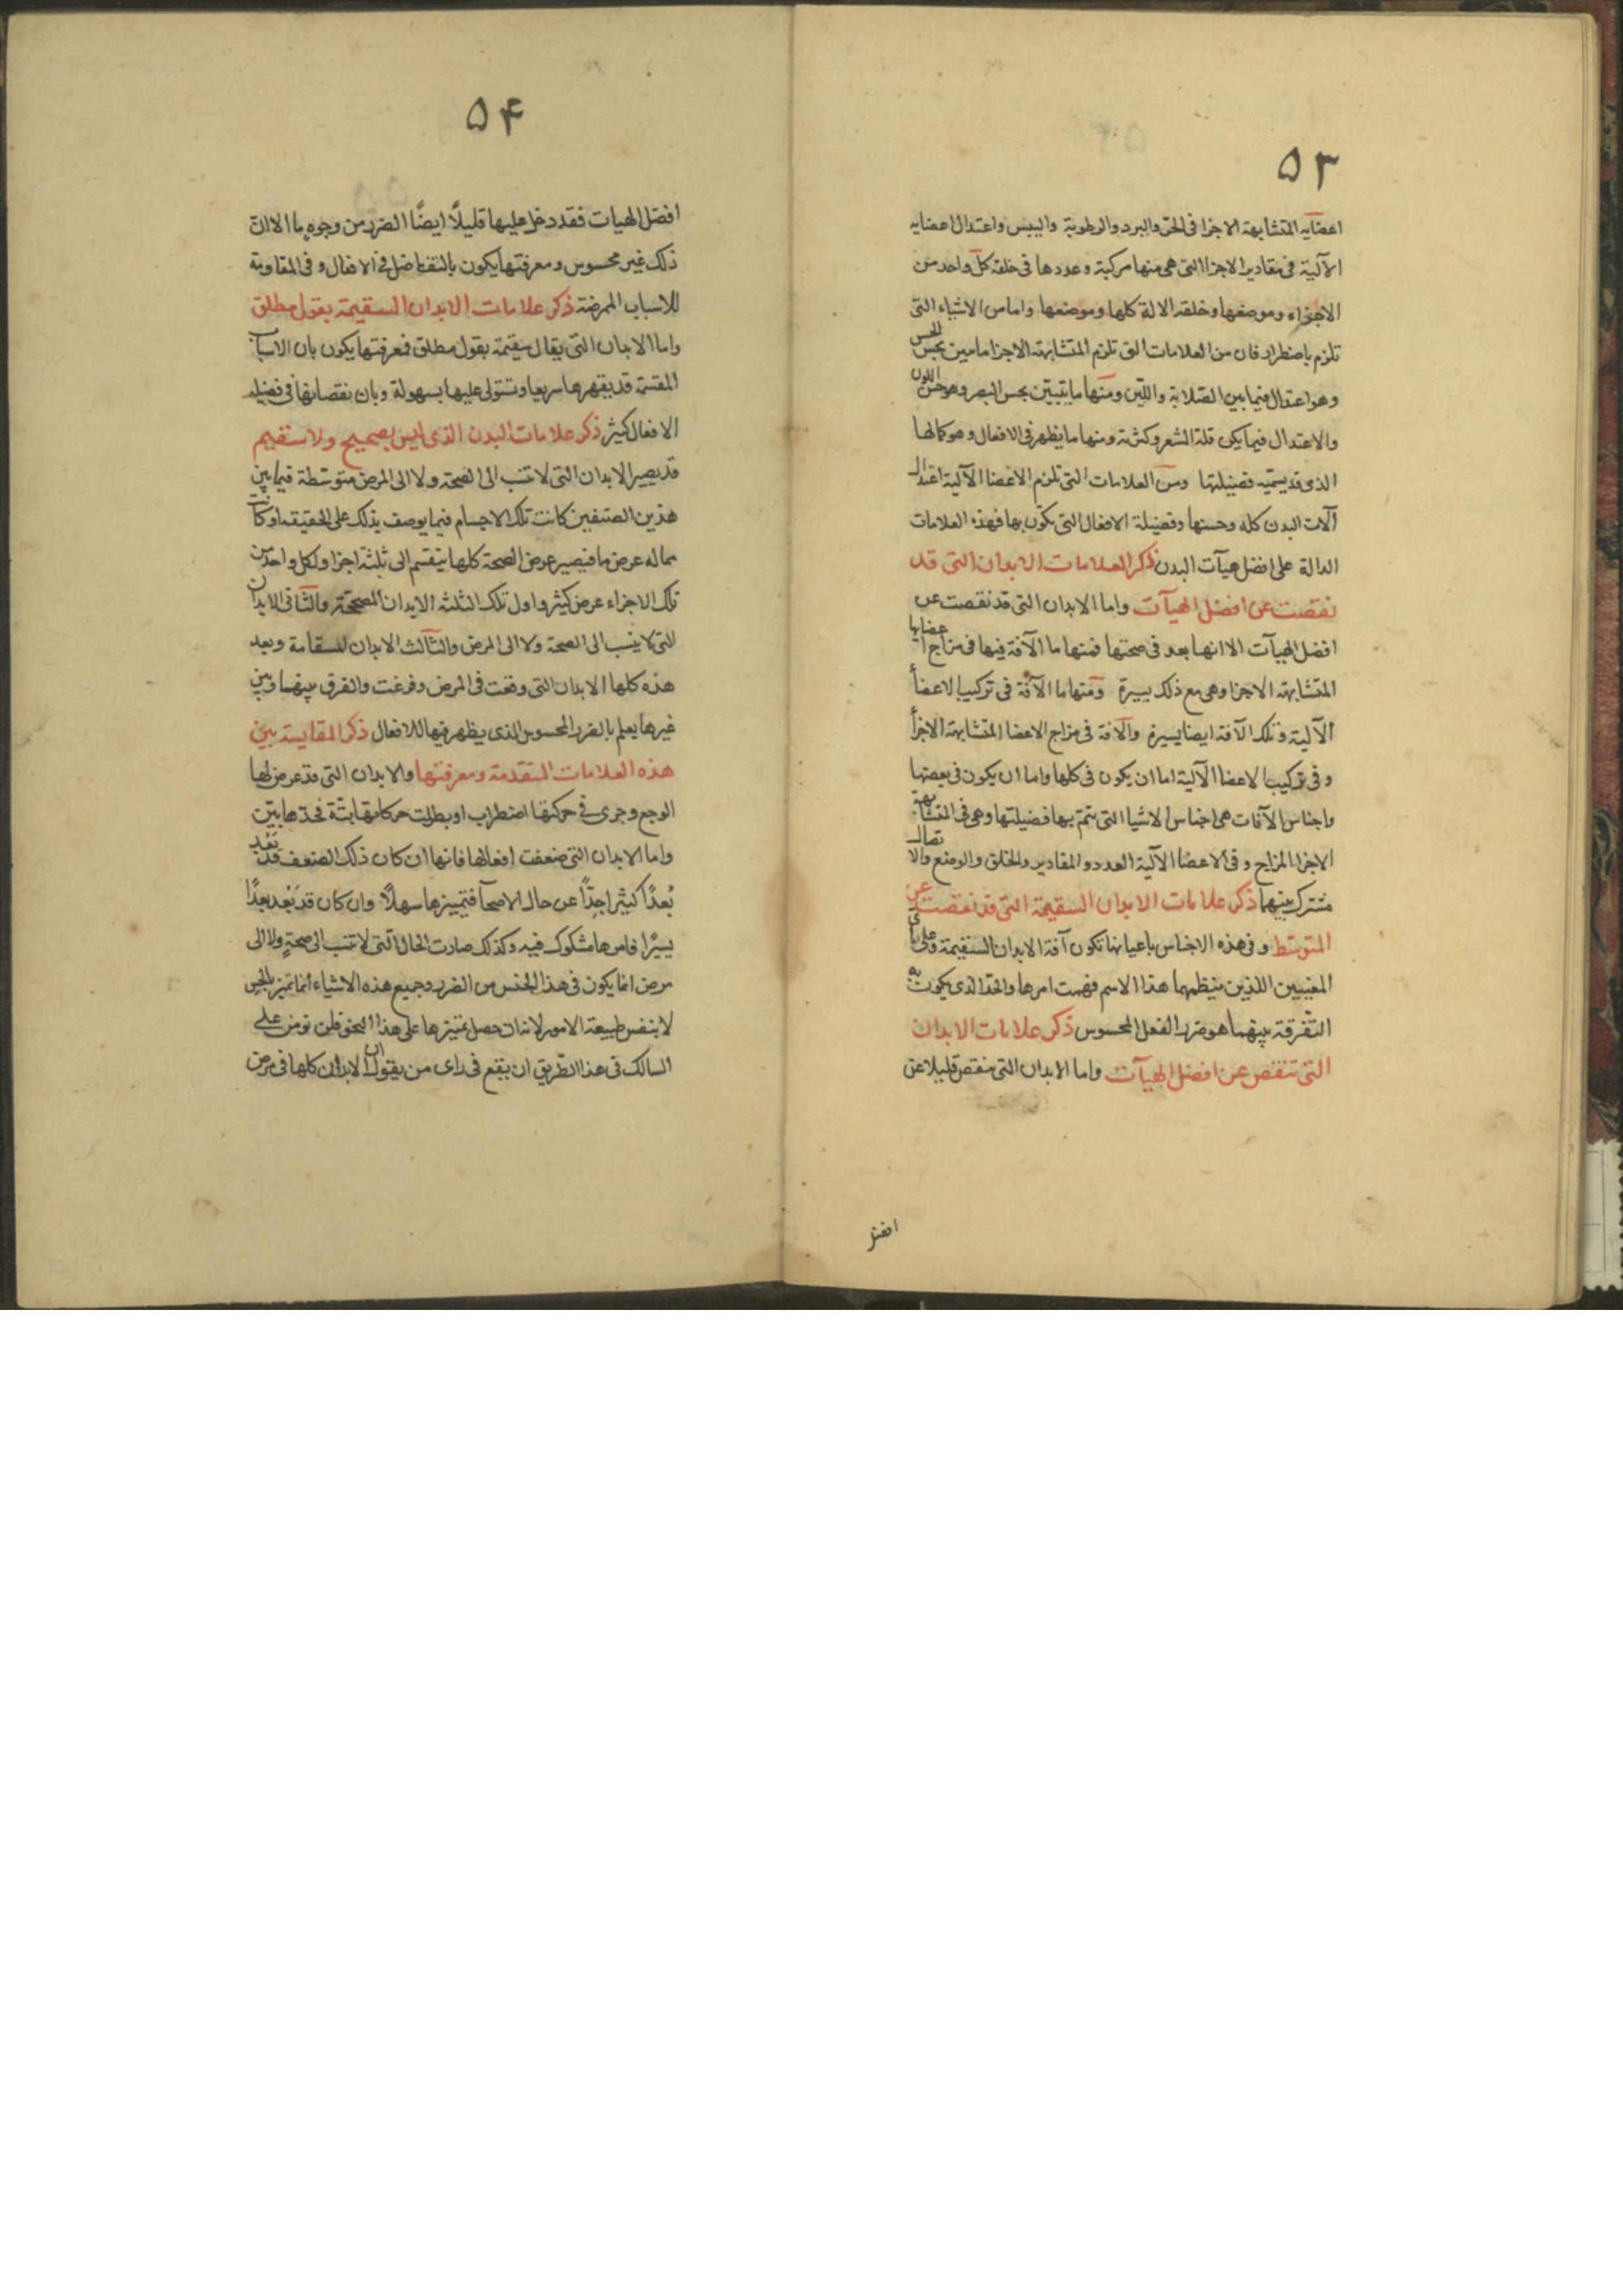 ٥٣
اعضايه المتشابهة الاجزا فى الحر والبرد والرطوبة واليبس واعتدال اعضايه
الآلية فى مقادير الاجزا التى هى منها مركبة وعددها فى خلقة كل واحد من
الاجزاء وموضعها وخلقة الالة كلها وموضعها واما من الاشياء التى
تلزم باضطرار فان من العلامات التى تلزم المتشابهة الاجزا ما يبين بحس الحس
وهو اعتدال فيما بين الصلابة واللين ومنها ما يتبين بحس البصر وهو حسن اللون
والاعتدال فيما يكن قلة الشعر وكثرته ومنها ما يظهر فى الافعال وهو كمالها
الذى قد يسميه فضيلتها ومن العلامات التى تلزم الاعضا الآلية اعتدال
آلات البدن كله وحسنها وفضيلة الافعال التى يكون بها فهذه العلامات
الدالة على افضل هيآت البدن ذكر العلامات الابدان التى قد
نقصت عن افضل الهيآت واما الابدان التى قد نقصت عن
افضل الهيآت الا انها بعد فى صحتها فمنها ما الآفة فيها فى مزاج اعضايها
المتشابهة الاجزا وهى مع ذلك يسيرة ومنها ما الآفة فى تركيب الاعضأ
الآلية وتلك الآفة ايضا يسيرة والآفة فى مزاج الاعضا المتشابهة الاجزأ
وفى تركيب الاعضا الآلية اما ان يكون فى كلها واما ان يكون فى بعضها
واجناس الآفات هى اجناس الاشيا التى تتم بها فضيلتها وهى فى المتشابهة
الاجزا المزاج وفى الاعضا الآلية العدد والمقادير والخلق والوضع والاتصال
مشترك بينهما ذكر علامات الابدان السقيمة التى قد نقصت عن
المتوسط وفى هذه الاجناس باعيانها تكون آفة الابدان السقيمة وعلى اى
المعنيين اللذين ينظمهما هذا الاسم فهمت امرها والحد الذى يكون به
التفرقة بينهما هو ضرر الفعل المحسوس ذكر علامات الابدان
التى تنقص عن افضل الهيآت واما الابدان التى تنقص قليلا عن
افضل
٥۴
افضل الهيات فقد دخل عليها قليلاً ايضًا الضرر من وجوهٍ ما الا ان
ذلك غير محسوس ومعرفتها يكون بالتفاضل فى الافعال وفى المقاومة
للاسباب الممرضة ذكر علامات الابدان السقيمة بقول مطلق
واما الابدان التى يقال سقيمة بقول مطلق فمعرفتها يكون بان الاسباب
قد يقهرها سريعا وتستولى عليها بسهولة وبان نقصانها فى فضيلة
الافعال كثير ذكر علامات البدن الذى ليس بصحيح ولا سقيم
قد يصير الابدان التى لا تنسب الى الصحة ولا الى المرض متوسطة فيما بين
هذين الصنفين كانت تلك الاجسام فيما يوصف بذلك على الحقيقه او كانت
مما له عرض ما فيصير عرض الصحة كلها ينقسم الى ثلثة اجزا ولكل واحد من
تلك الاجزاء عرض كثير واول تلك الثلثة الابدان المصححة والثانى الابدان
التى لا ينسب الى الصحة ولا الى المرض والثالث الابدان المسقامة وبعد
هذه كلها الابدان التى وقعت فى المرض وفرغت والفرق بينهما وبين
غيرها يعلم بالضرر المحسوس الذى يظهر فيها للافعال ذكر المقايسة بين
هذه العلامات المتقدمة ومعرفتها والابدان التى قد عرض لها
الوجع وجرى فى حركتها اضطراب او بطلت حركاتها بتّة فحدها بيّن
واما الابدان التى ضعفت افعالها فانها ان كان ذلك الضعف قد بَعُد
بُعدًا كثيرا جدّاً عن حال الاصحآ فتمييزها سهلاً وان كان قد بَعُد بعدًا
يسيرًا فامرها مشكوك فيه وكذلك صارت الحال التى لا تنسب الى صحةٍ ولا الى
مرض انما يكون فى هذا الجنس من الضرر وجميع هذه الاشياء انما تميز بالحس
لا بنفس طبيعة الامور لانه ان حصل تمييزها على هذا النحو فلن نومن على
السالك فى هذا الطريق ان يقع فى راى من يقول ان الابدان كلها فى مرض